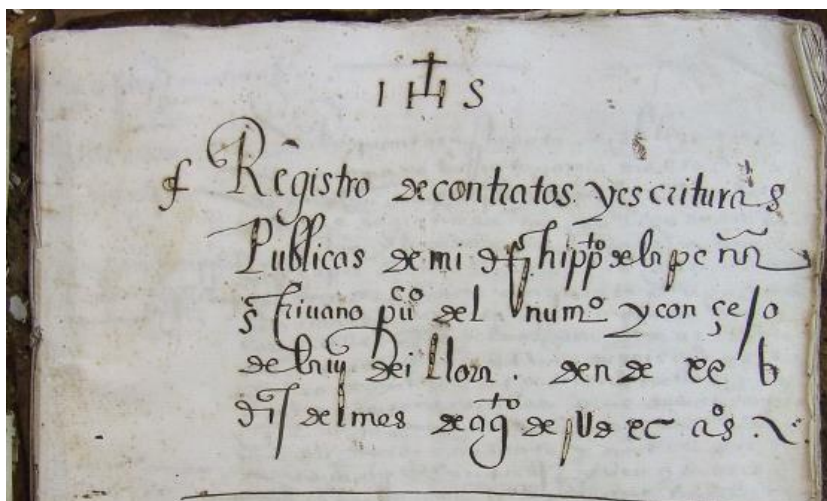 IHS
Registro de contratos y escrituras
Publicas de mi hippto de la peña
escriuano puco del numo y conçejo
de la uiª de illora . dende
dias del mes de agto de as .